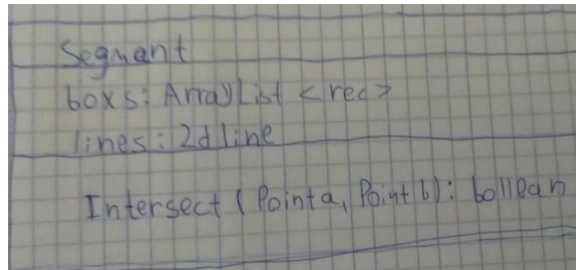 Segmant
boxs: ArrayList <rec>
lines: 2dline
Intersect (Point a, Point b): bollean